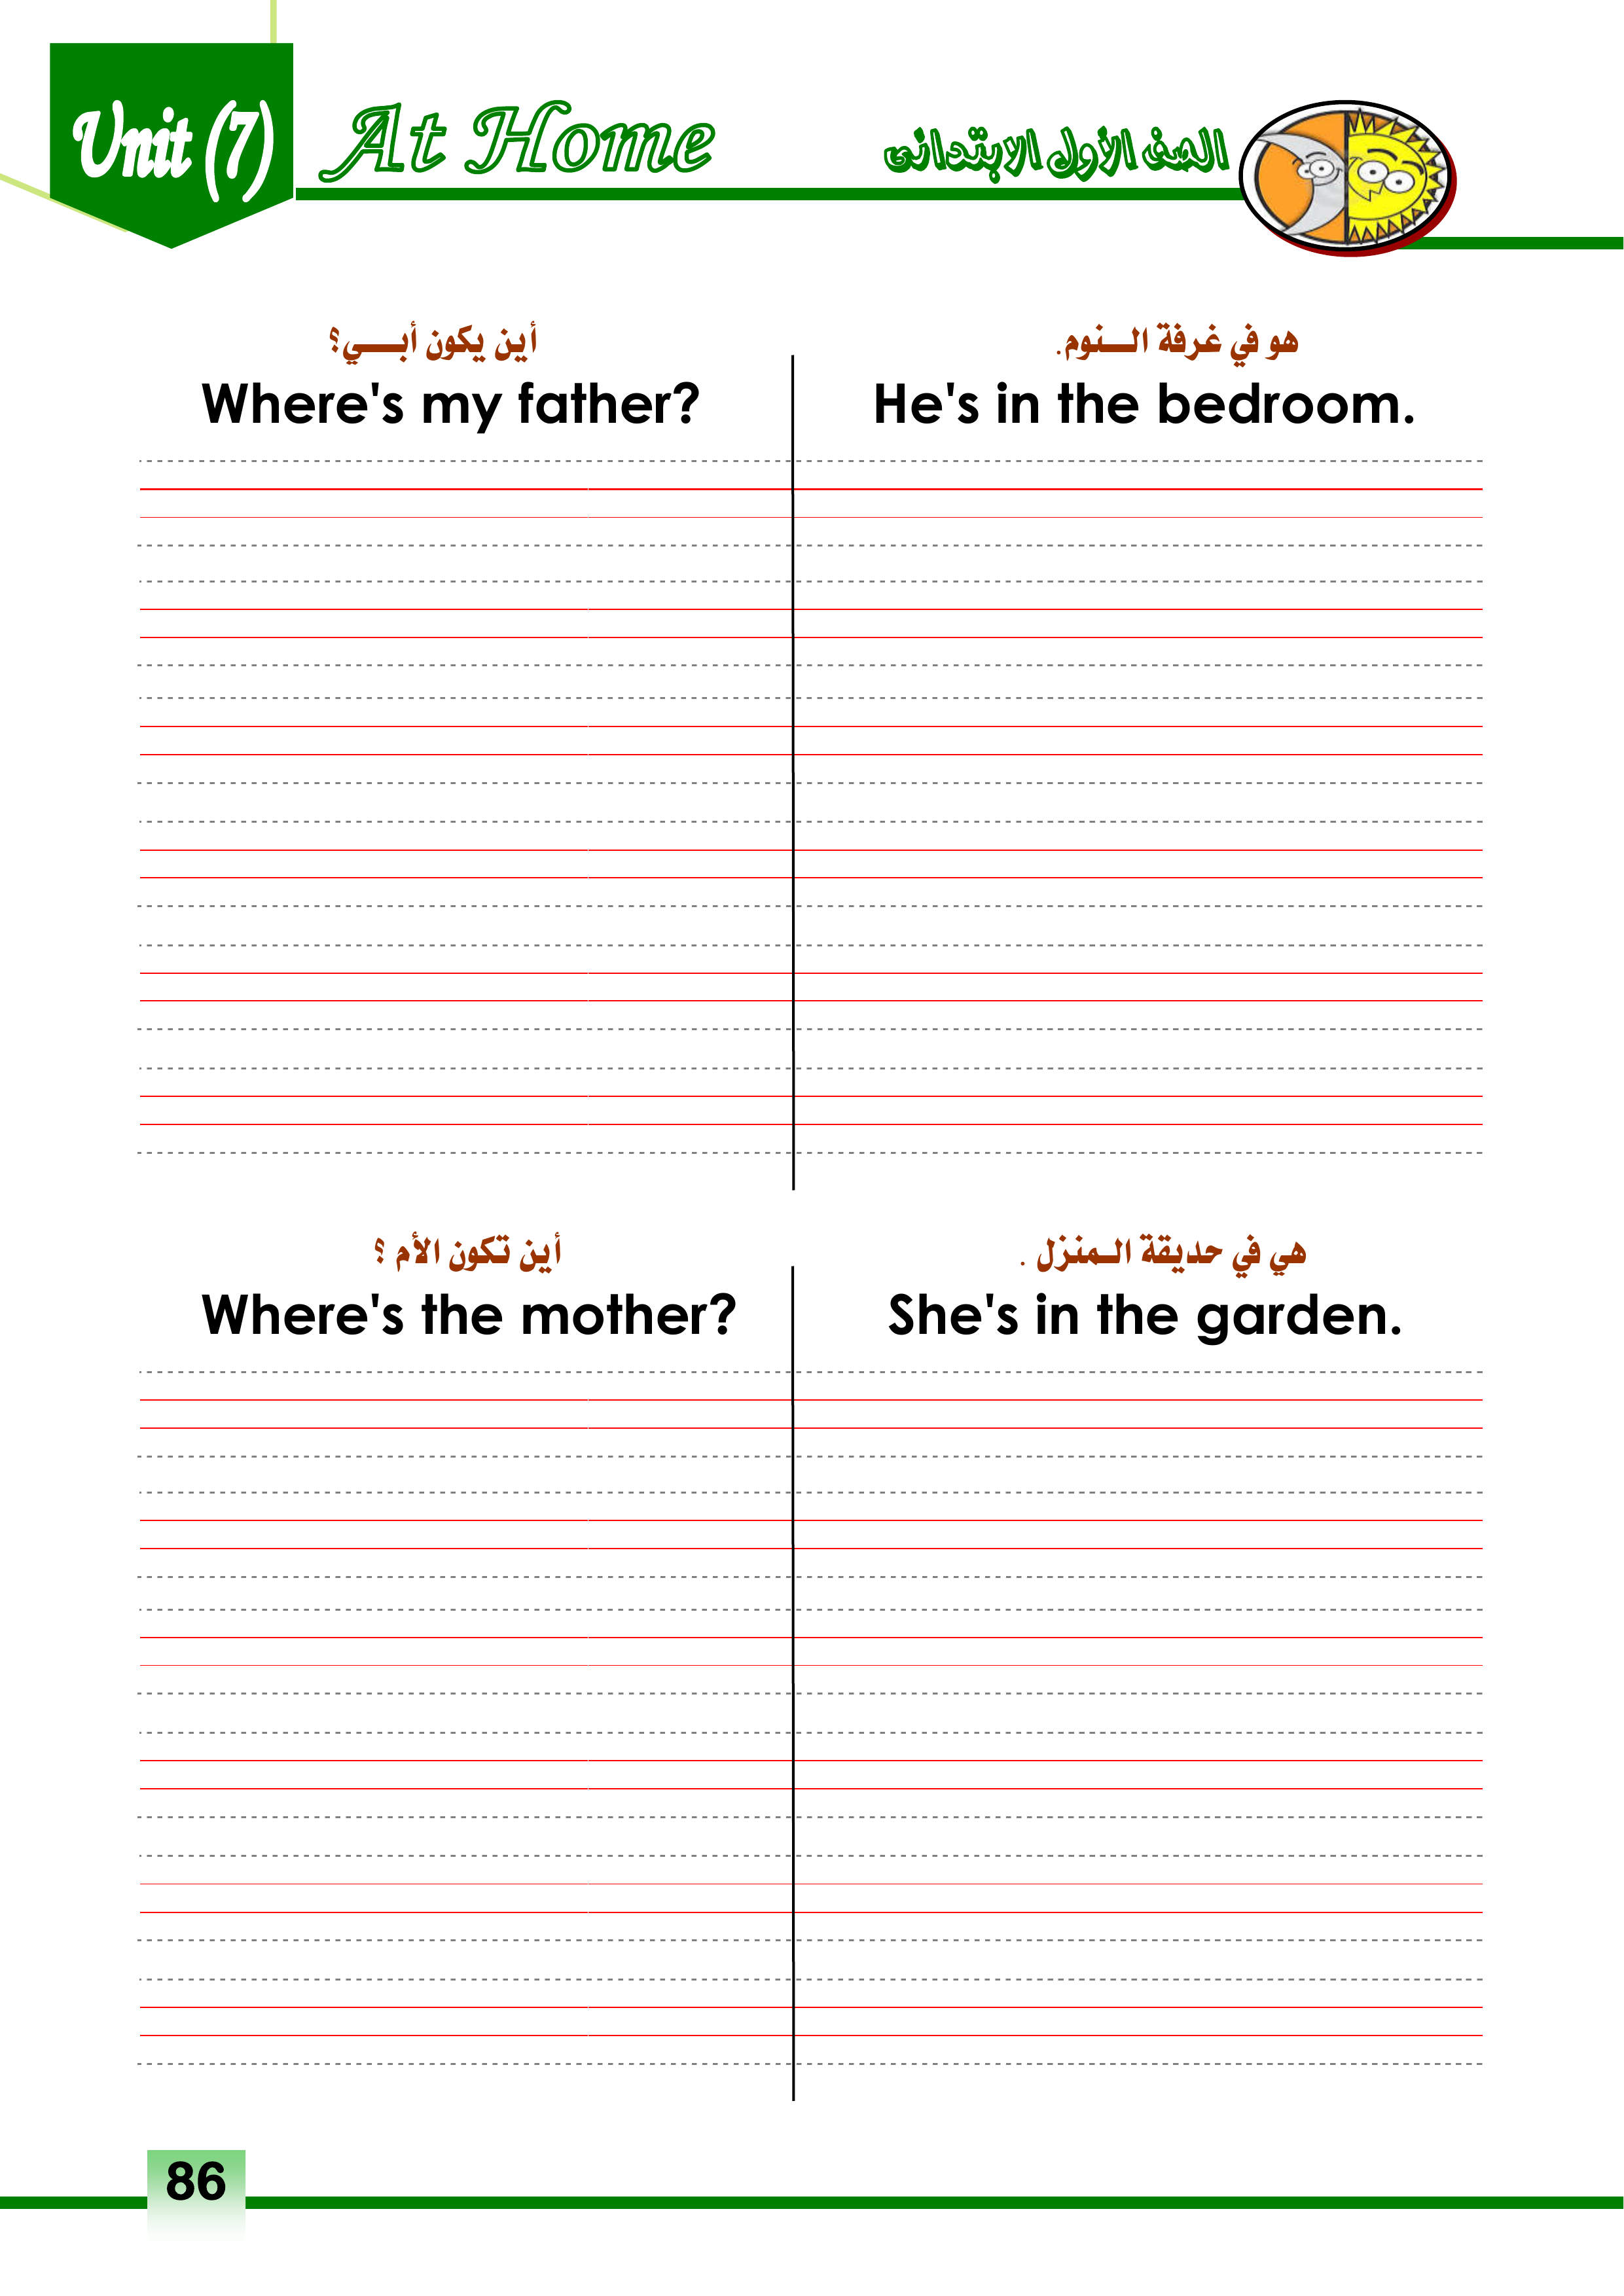 Unit (7)
At Home
الصف الأول الابتدائى
أين يكون أبـــــي؟
Where's my father?
هو في غرفة الـــنوم.
He's in the bedroom.
أين تكون الأم ؟
Where's the mother?
هي في حديقة الـمنزل .
She's in the garden.
86